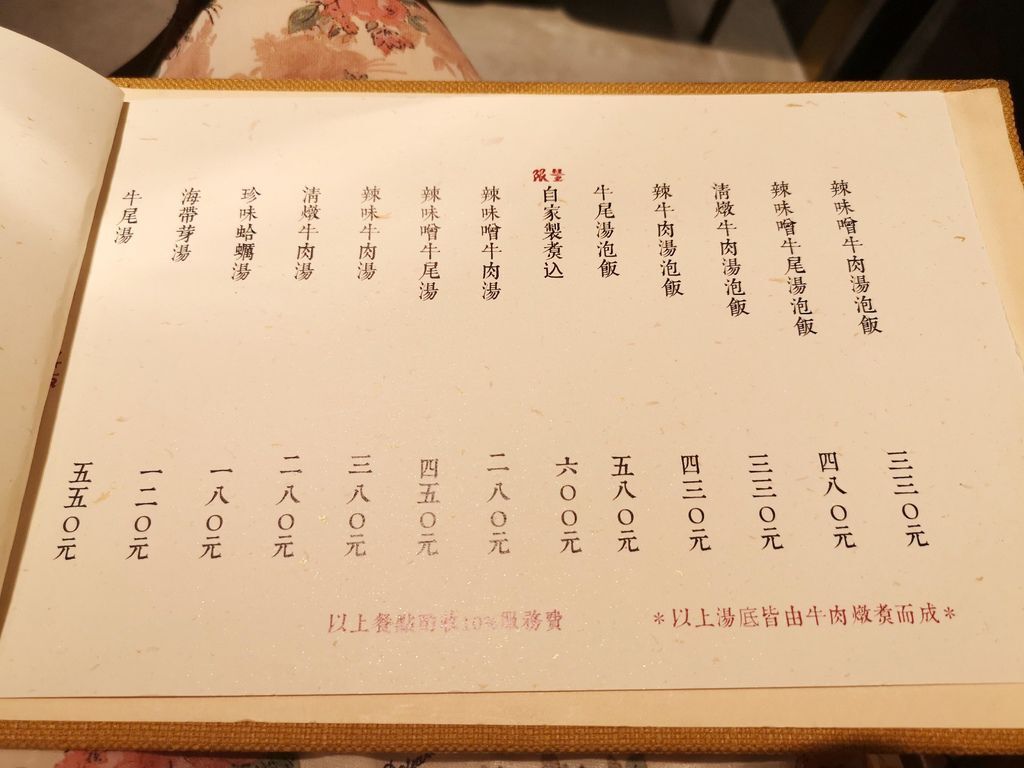 辣味噌牛肉湯泡飯 三三〇元
辣味噌牛尾湯泡飯 四八〇元
清燉牛肉湯泡飯 三三〇元
辣牛肉湯泡飯 四三〇元
牛尾湯泡飯 五八〇元
限量 自家製煮込 六〇〇元
辣味噌牛肉湯 二八〇元
辣味噌牛尾湯 四五〇元
辣味牛肉湯 三八〇元
清燉牛肉湯 二八〇元
珍味蛤蠣湯 一八〇元
海帶芽湯 一二〇元
牛尾湯 五五〇元
*以上湯底皆由牛肉燉煮而成*
以上餐點酌收10%服務費